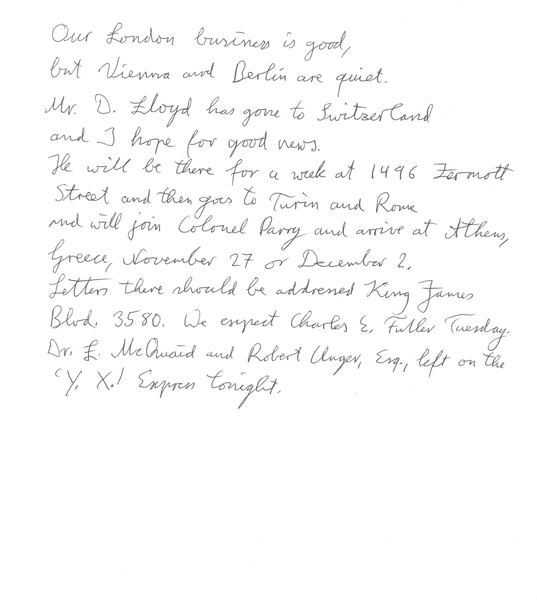 Our London business is good,
but Vienna and Berlin are quiet.
Mr. D. Lloyd has gone to Switzerland
and I hope for good news.
He will be there for a week at 1496 Zermott
Street and then goes to Turin and Rome
and will join Colonel Parry and arrive at Athens,
Greece, November 27 or December 2.
Letters there should be addressed King James
Blvd. 3580. We expect Charles E. Fuller Tuesday.
Dr. L. McQuaid and Robert Unger, Esq., left on the
'Y. X.' Express tonight.